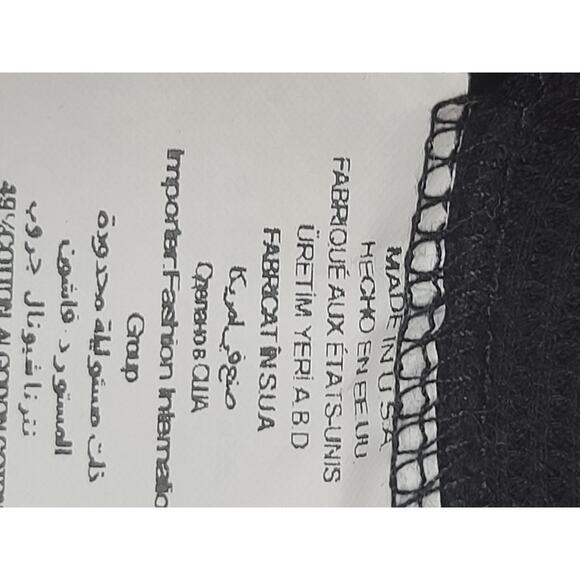 MADE IN U S A
HECHO EN EE.UU.
FABRIQUÉ AUX ÉTATS-UNIS
ÜRETİM YERİ A.B.D
FABRICAT ÎN S.U.A
صنع في امريكا
Сделано в США
Importer:Fashion Internatio
Group
ذات مسئولية محدودة
المستورد: فاشون
نترناشيونال جروب